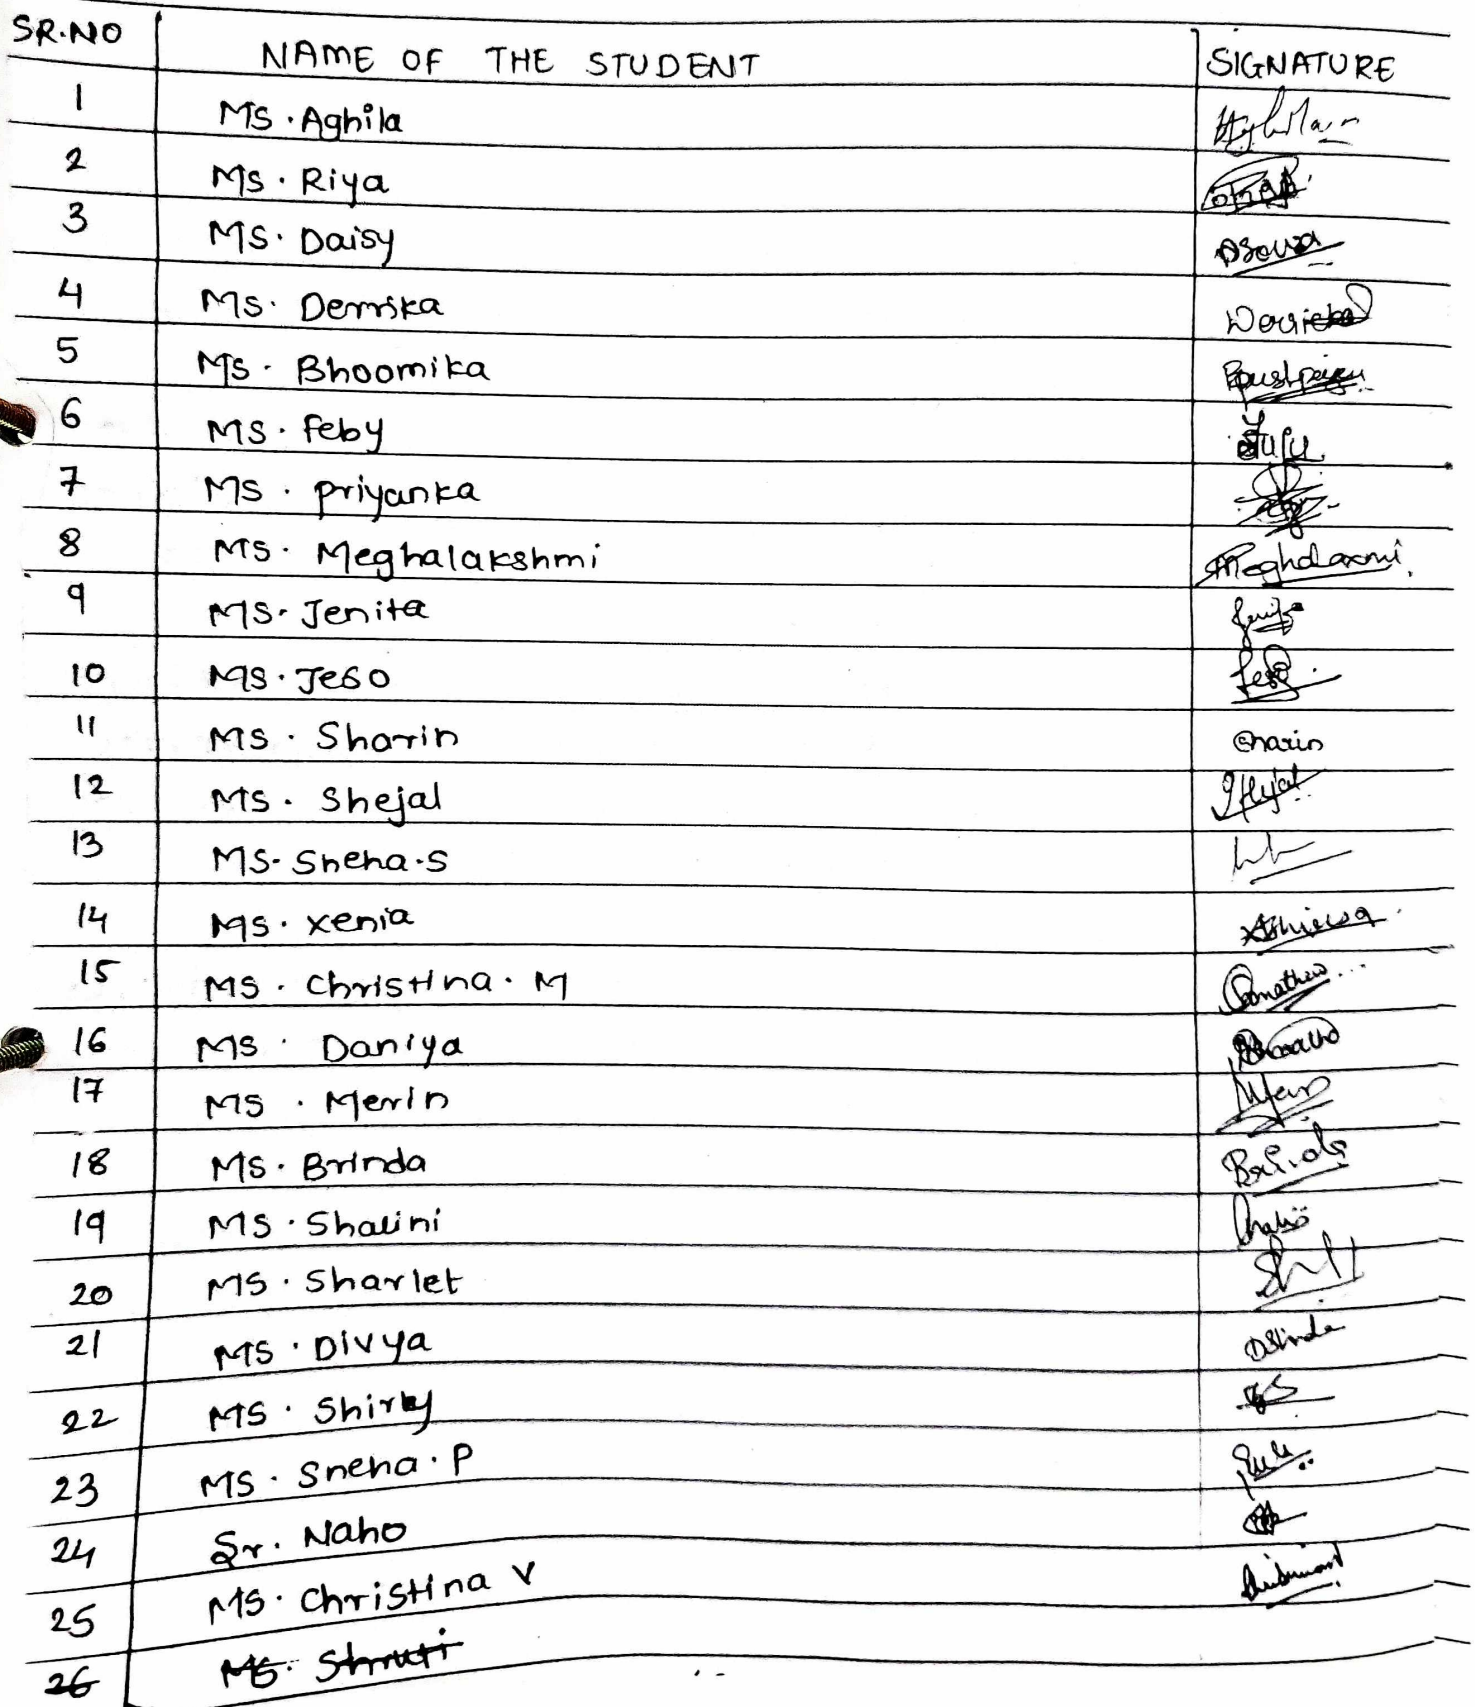 SR.NO NAME OF THE STUDENT SIGNATURE
1 MS. Aghila
2 MS. Riya
3 MS. Daisy DSouza
4 MS. Derrika
5 MS. Bhoomika
6 MS. Feby
7 MS. Priyanka
8 MS. Meghalakshmi Meghalaxmi
9 MS. Jenita
10 MS. Jeso Jeso
11 MS. Sharin Sharin
12 MS. Shejal Shejal
13 MS. Sneha.S
14 MS. Xenia
15 MS. Christina.M
16 MS. Daniya
17 MS. Merin
18 MS. Brinda Brinda
19 MS. Shalini
20 MS. Sharlet
21 MS. Divya
22 MS. Shirly
23 MS. Sneha.P
24 Sr. Naho
25 MS. Christina V
26 MS. Shruti